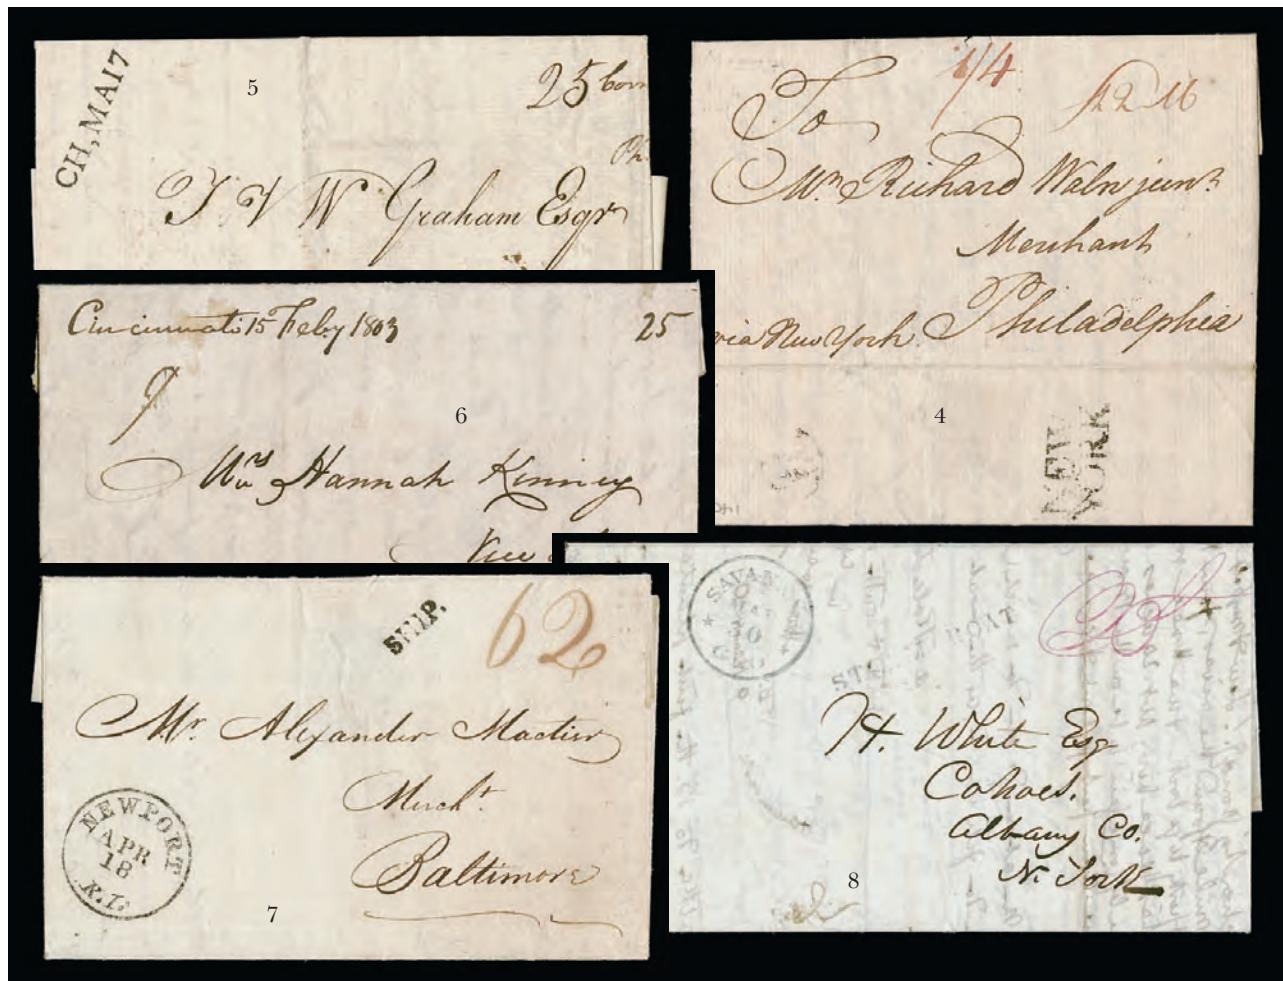 CH, MA17
5
25
J & W Graham Esqr
1/4
To
Mr. Richard Waln junr
Merchant
Philadelphia
via New York
4
NEW
YORK
Cincinnati 15 Feby 1803
25
6
Mrs Hannah Kinney
SHIP.
62
Mr. Alexander Mactier
Mercht.
Baltimore
NEWPORT
APR
18
R.I.
7
SAVAN
STE BOAT
H. White Esq
Cohoes.
Albany Co.
N. York
8